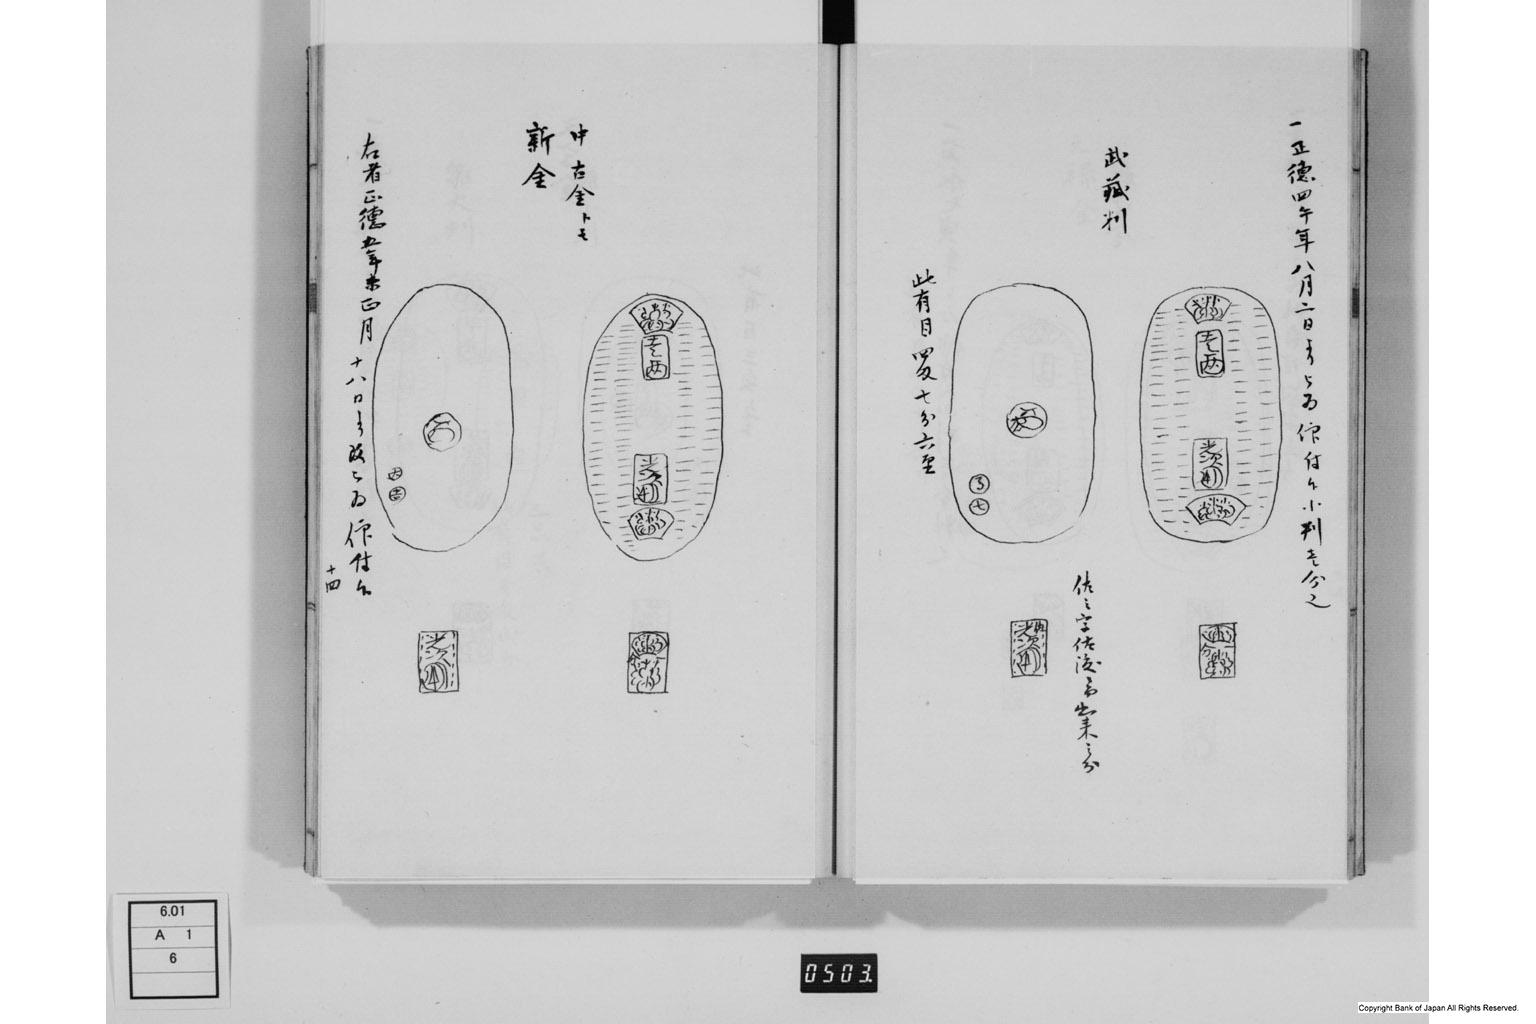 一正徳四午年八月二日ゟ被為仰付候小判壱分也
武蔵判
壱両
光次
佐
佐之字佐渡ニ而出来之分
此有目四匁七分六厘
中古金トモ
新金
壱両
光次
右者正徳五年未正月十八日ゟ改被為仰付候
十四
6.01
A 1
6
0503.
Copyright Bank of Japan All Rights Reserved.